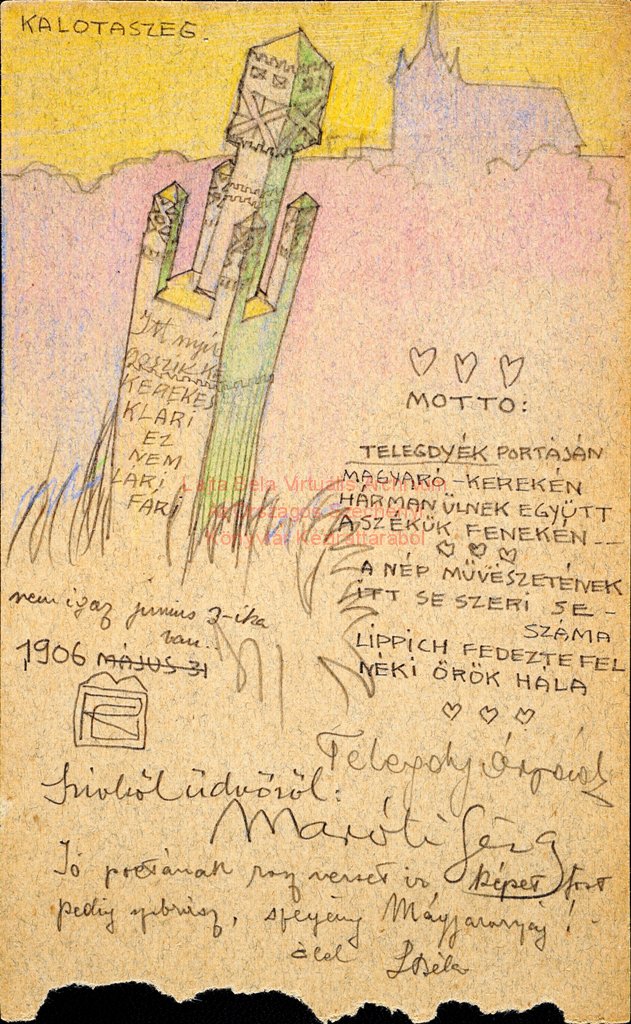 KALOTASZEG.
Itt nyu
GOSZIK KE
KEREKES
KLARI
EZ
NEM
LARI
FÁRI
MOTTO:
TELEGDYÉK PORTÁJÁN
MAGYARÓ-KEREKÉN
HÁRMAN ÜLNEK EGYÜTT
A SZÉKÜK FENEKÉN
A NÉP MŰVÉSZETÉNEK
ITT SE SZERI SE-
SZÁMA
LIPPICH FEDEZTE FEL
NÉKI ÖRÖK HÁLA
Lajta Béla Virtuális Archívum
Országos Széchényi
Könyvtár Kézirattárából
nem igaz június 3-ika
van..
1906 MÁJUS 31
Telegdy Árpád
Szivből üdvözöl:
Maróti Géza
Jó poétának rossz verset ir, képet fest
pedig szobrász, szegény Magyarország!
ölel Béla